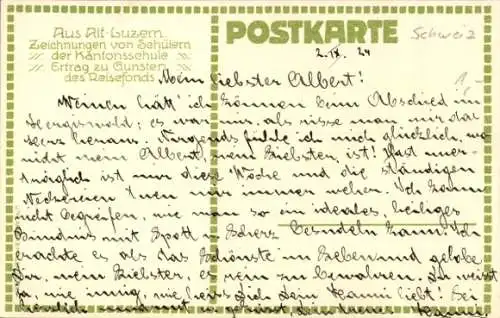 Aus Alt-Luzern
Zeichnungen von Schülern
der Kantonsschule
Ertrag zu Gunsten
des Reisefonds
POSTKARTE
Schweiz
2. IX. 24
1,-
Mein liebster Albert!
Weinen hätt' ich können beim Abschied im
Hergiswald; es war mir, als risse man mir das
Herz heraus. Nirgends fühle ich mich glücklich, wo
nicht mein Albert, mein Liebster, ist! Fast uner-
träglich ist mir diese Woche und die ständigen
Neckereien tuen mir immer weher. Ich kann
nicht begreifen, wie man so ein ideales, heiliges
Bündnis mit Spott u. Scherz besudeln kann. Ich
erachte es als das Schönste im Leben und gelobe
Dir, mein Liebster, es rein zu bewahren. Du weisst
ja, wie innig, wie heiss Dich Dein liebt! Sei
herzlich u. geküsst,